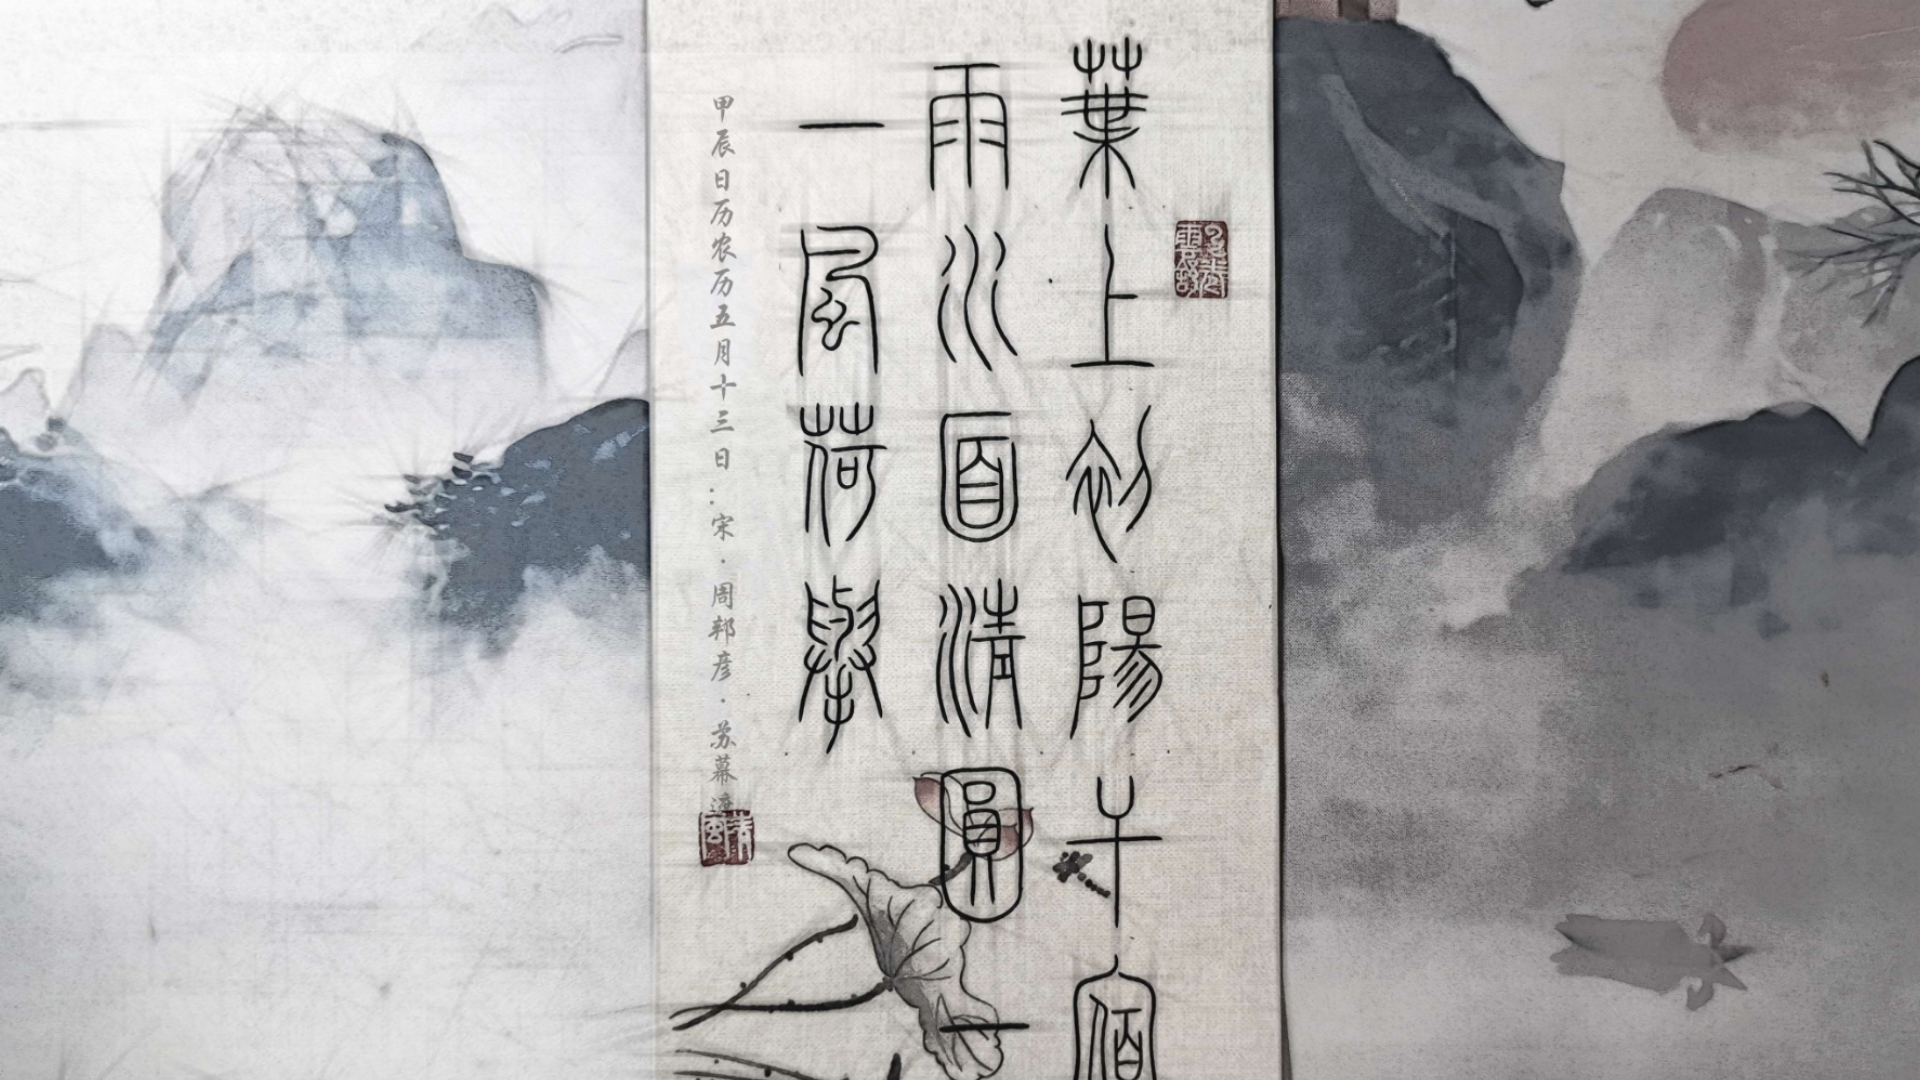 葉上初陽干宿
雨水面清圓一
一風荷舉
甲辰日历农历五月十三日：宋·周邦彦·苏幕遮